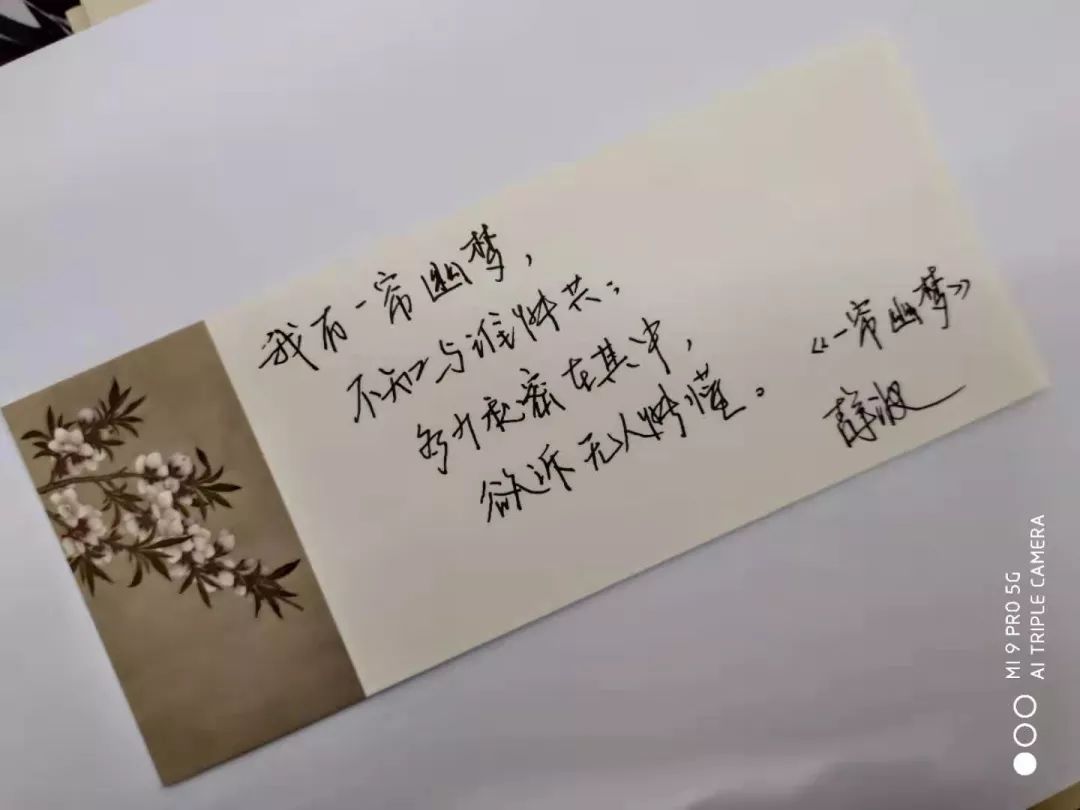 我有一帘幽梦，
不知与谁能共；
多少秘密在其中，
欲诉无人能懂。
《一帘幽梦》
MI 9 PRO 5G
AI TRIPLE CAMERA